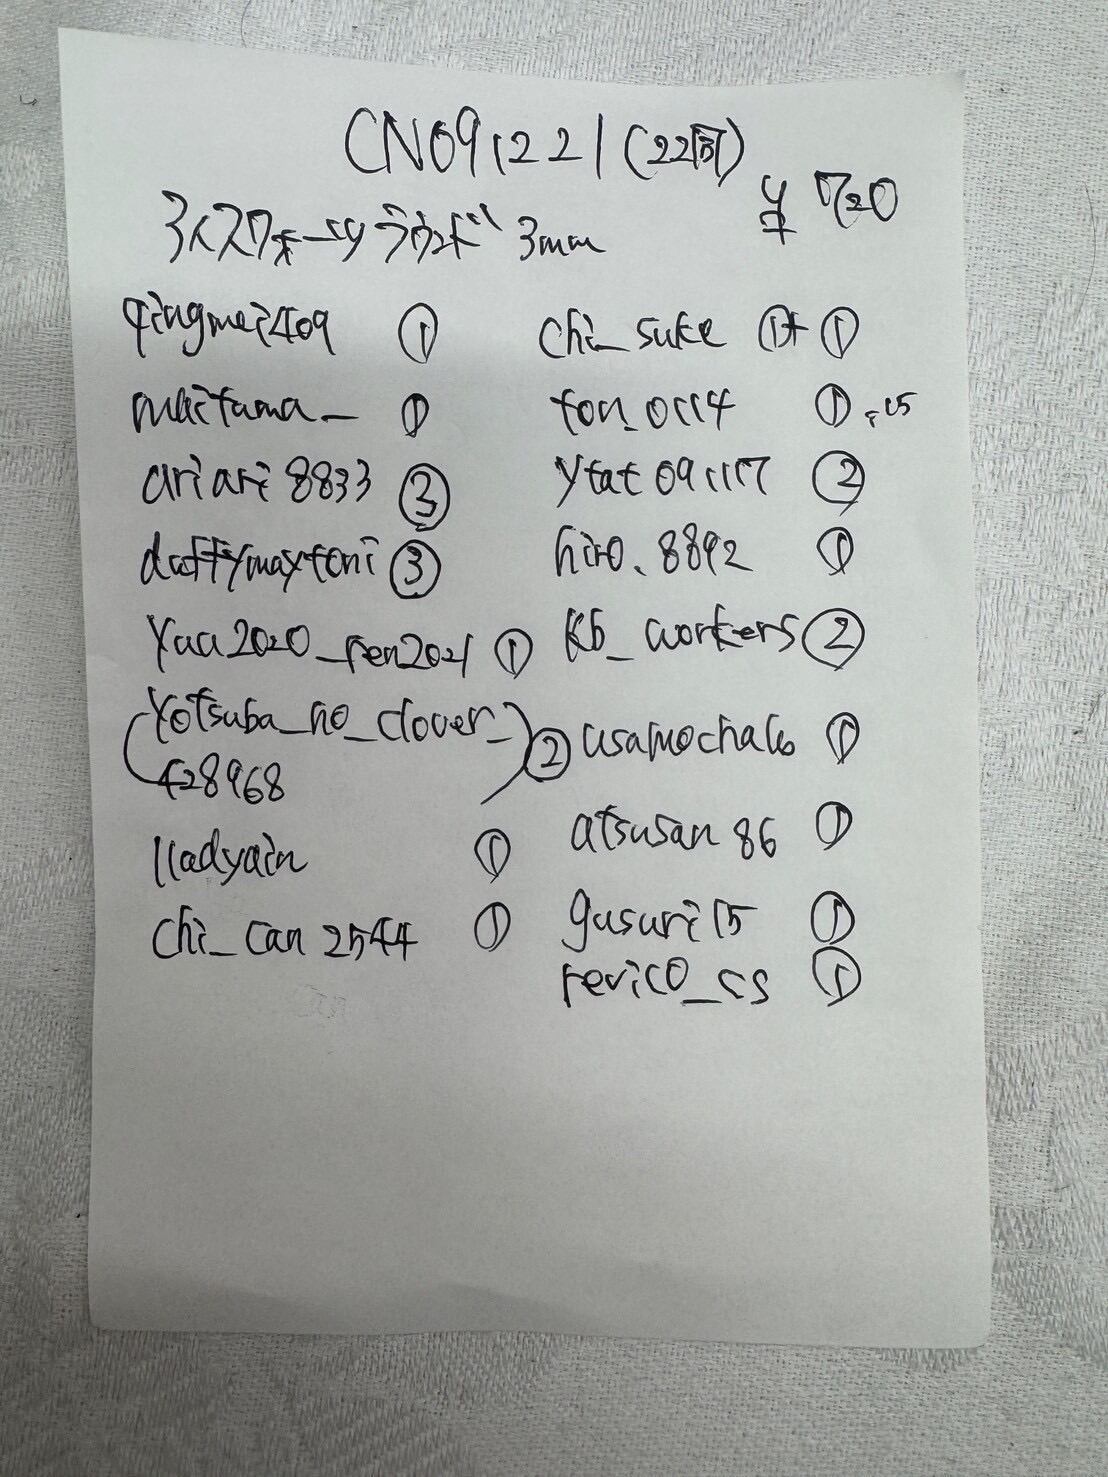 CN091221(22間)
¥720
スイスクォーツラウンド 3mm
qingmei409 ①
maitama_ ①
ariari8833 ③
daffymaytoni ③
yuu2020_ren2021 ①
(yotsuba_no_clover_
428968) ②
lladyain ①
chi_can2544 ①
chi_suke ①+①
ton_0114 ①
ytat091117 ②
hiro.8892 ①
kb_workers ②
usamochako ①
atsusan86 ①
gusuri15 ①
revico_cs ①